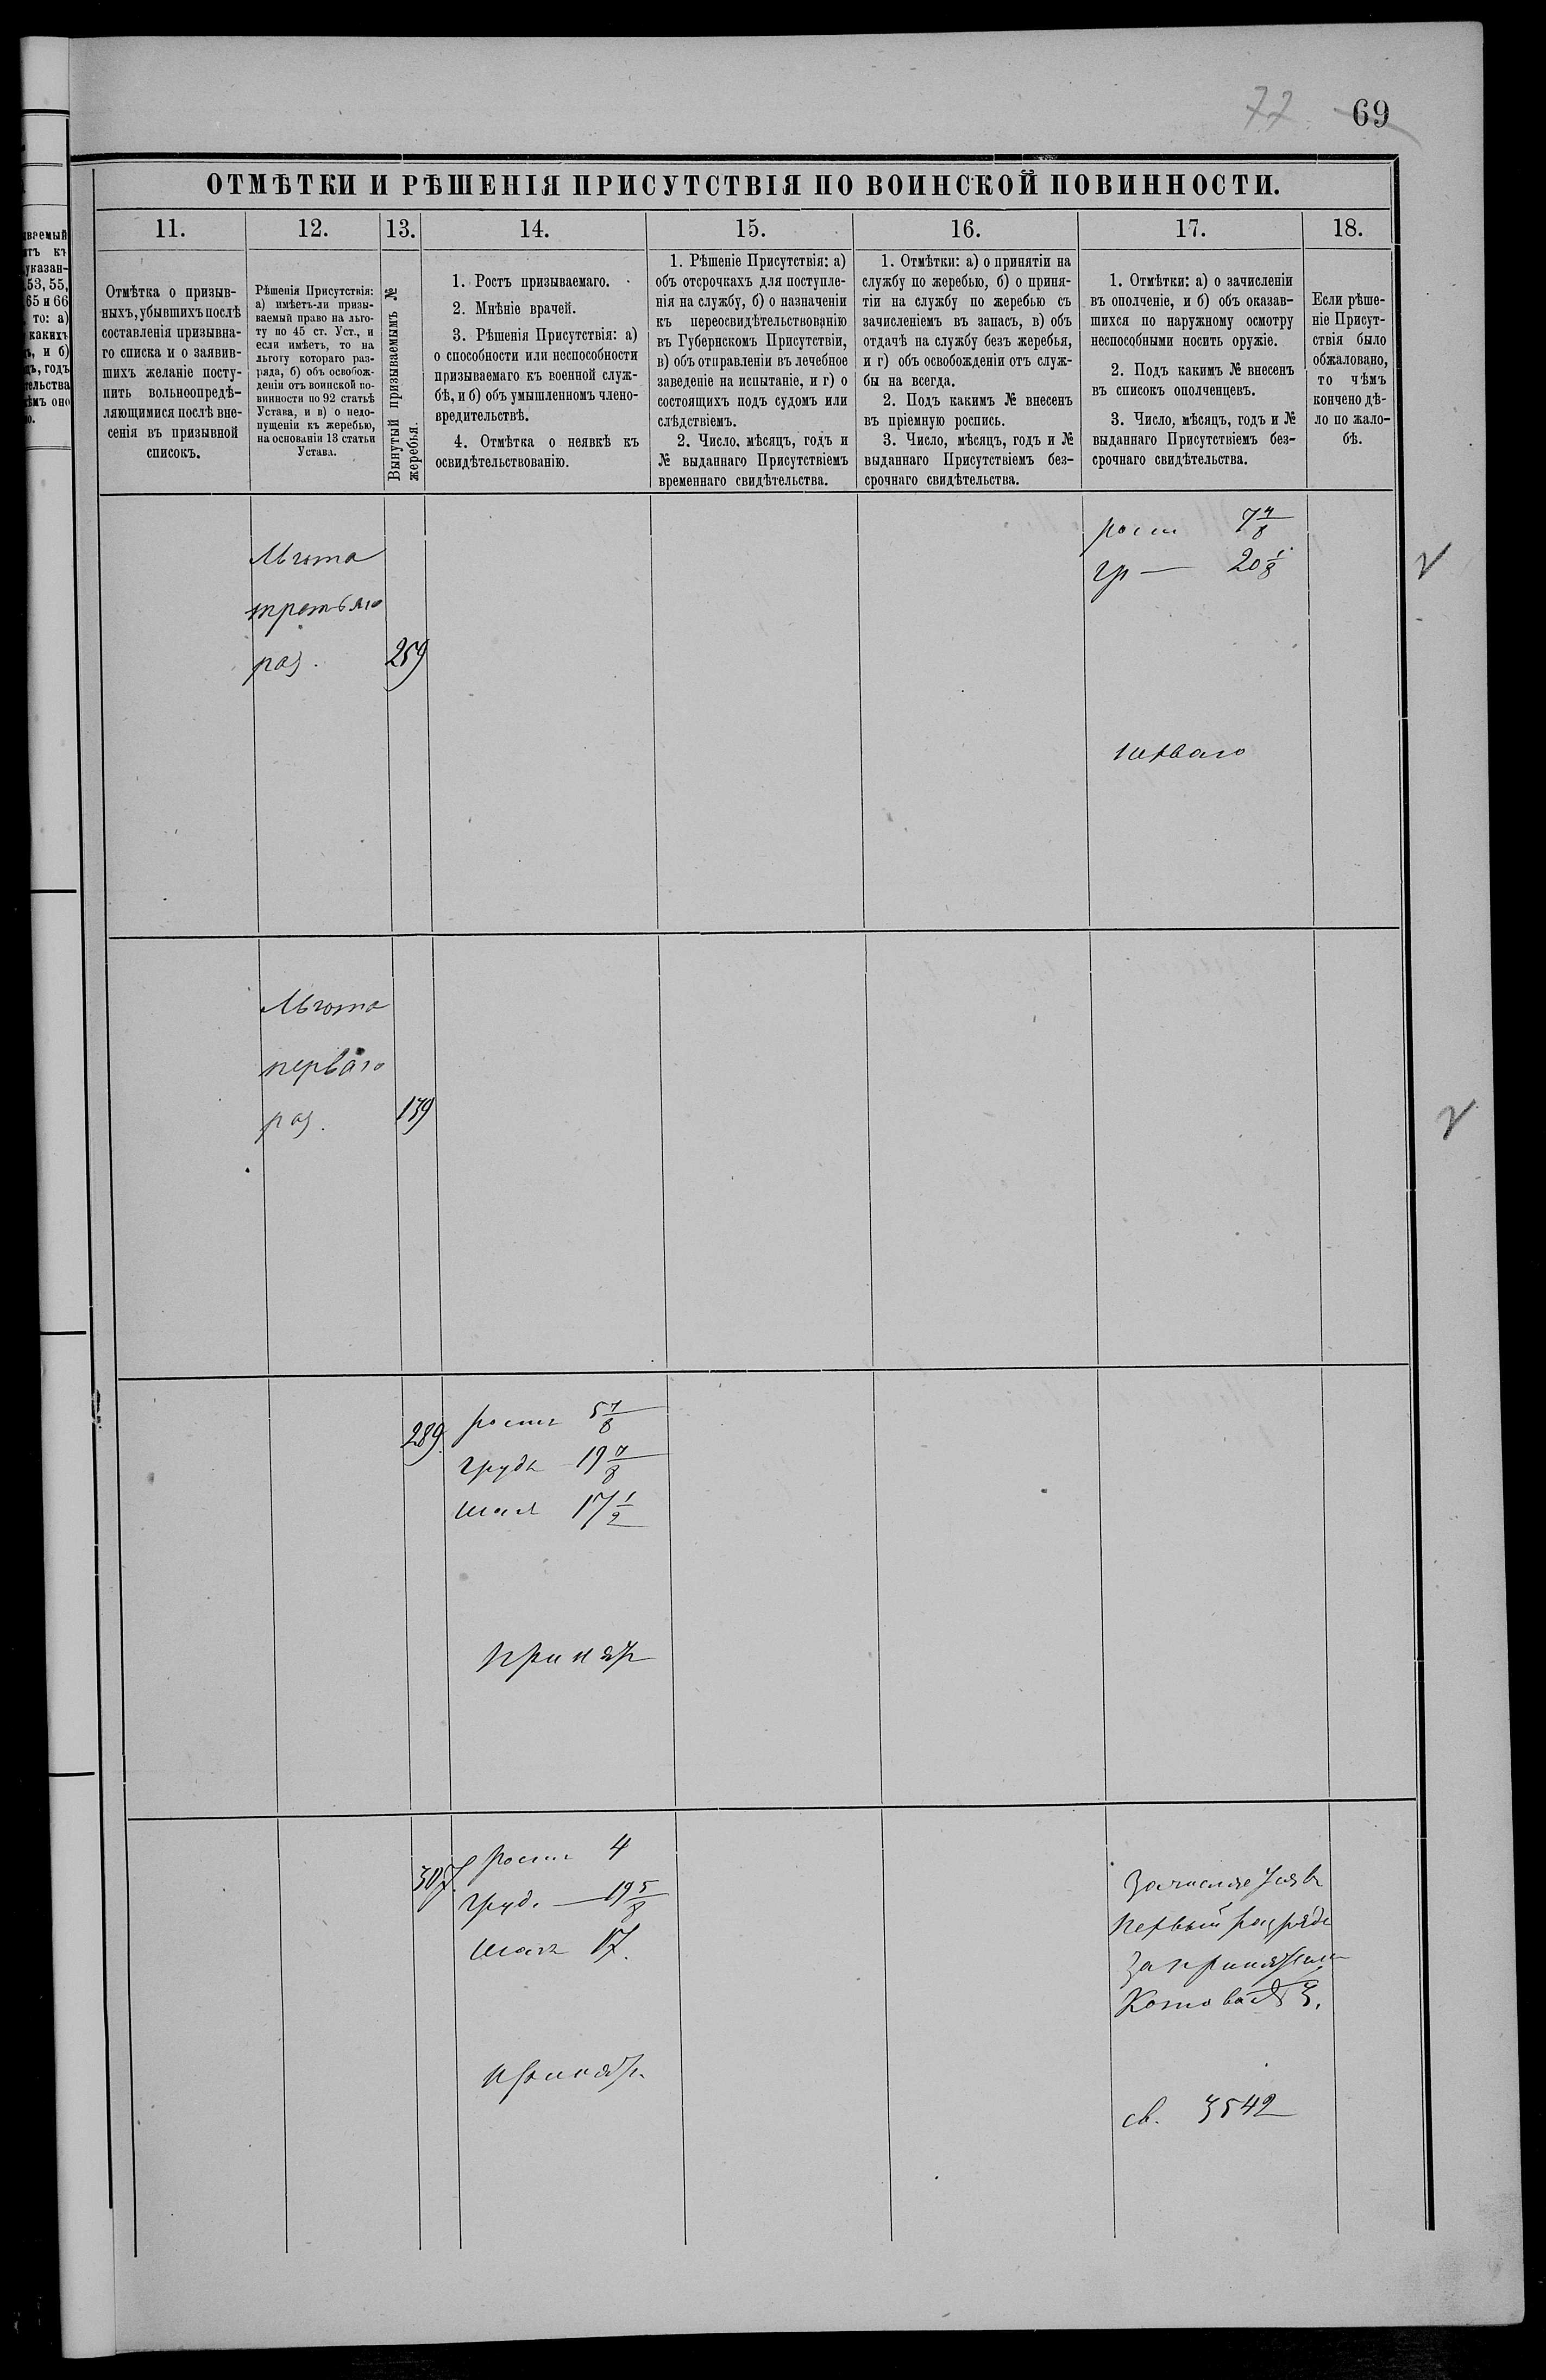 77 69
ОТМѢТКИ И РѢШЕНІЯ ПРИСУТСТВІЯ ПО ВОИНСКОЙ ПОВИННОСТИ.
11.
12.
13.
14.
15.
16.
17.
18.
Отмѣтка о призыв-
ныхъ, убывшихъ послѣ
составленія призывна-
го списка и о заявив-
шихъ желаніе посту-
пить вольноопредѣ-
ляющимися послѣ вне-
сенія въ призывной
списокъ.
Рѣшенія Присутствія:
а) имѣетъ-ли призы-
ваемый право на льго-
ту по 45 ст. Уст., и
если имѣетъ, то на
льготу котораго раз-
ряда, б) объ освобож-
деніи отъ воинской по-
винности по 92 статьѣ
Устава, и в) о недо-
пущеніи къ жеребью,
на основаніи 13 статьи
Устава.
Вынутый призываемымъ №
жеребья.
1. Ростъ призываемаго.
2. Мнѣніе врачей.
3. Рѣшенія Присутствія: а)
о способности или неспособности
призываемаго къ военной служ-
бѣ, и б) объ умышленномъ члено-
вредительствѣ.
4. Отмѣтка о неявкѣ къ
освидѣтельствованію.
1. Рѣшеніе Присутствія: а)
объ отсрочкахъ для поступле-
нія на службу, б) о назначеніи
къ переосвидѣтельствованію
въ Губернскомъ Присутствіи,
в) объ отправленіи въ лечебное
заведеніе на испытаніе, и г) о
состоящихъ подъ судомъ или
слѣдствіемъ.
2. Число, мѣсяцъ, годъ и
№ выданнаго Присутствіемъ
временнаго свидѣтельства.
1. Отмѣтки: а) о принятіи на
службу по жеребью, б) о приня-
тіи на службу по жеребью съ
зачисленіемъ въ запасъ, в) объ
отдачѣ на службу безъ жеребья,
и г) объ освобожденіи отъ служ-
бы на всегда.
2. Подъ какимъ № внесенъ
въ пріемную роспись.
3. Число, мѣсяцъ, годъ и №
выданнаго Присутствіемъ без-
срочнаго свидѣтельства.
1. Отмѣтки: а) о зачисленіи
въ ополченіе, и б) объ оказав-
шихся по наружному осмотру
неспособными носить оружіе.
2. Подъ какимъ № внесенъ
въ списокъ ополченцевъ.
3. Число, мѣсяцъ, годъ и №
выданнаго Присутствіемъ без-
срочнаго свидѣтельства.
Если рѣше-
ніе Присут-
ствія было
обжаловано,
то чѣмъ
кончено дѣ-
ло по жало-
бѣ.
Льгота
третьяго
раз.
259
гр — 20 1/8
перваго
Льгота
перваго
раз.
139
289
ростъ 5 7/8
грудь 19 7/8
17 1/2
принятъ
307
ростъ 4
груд. — 19 5/8
17.
принятъ
первый разрядъ
св. 3542